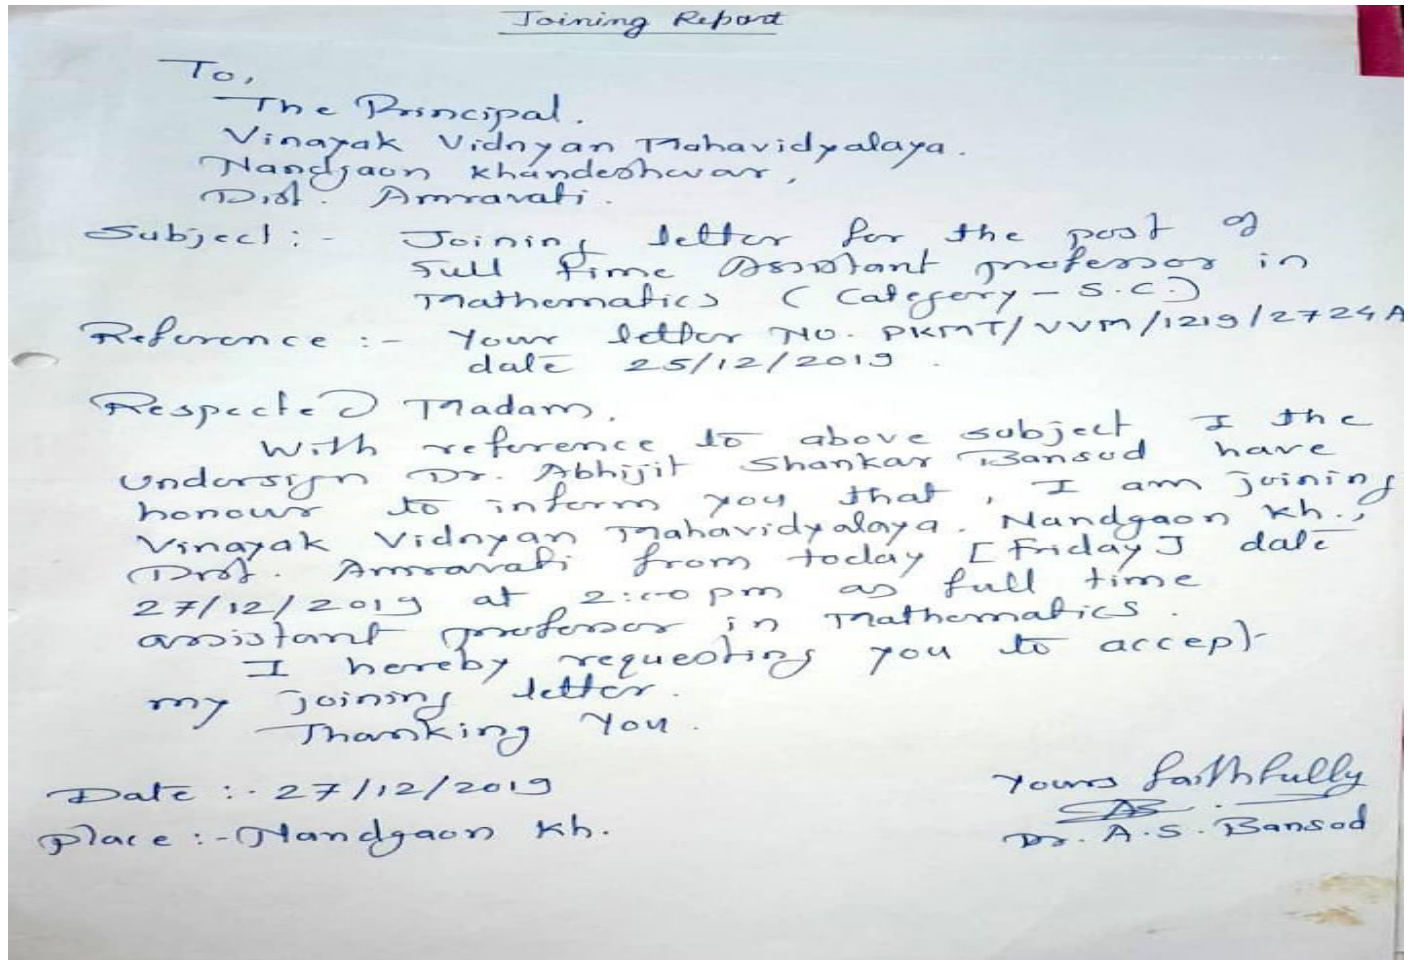 Joining Report
To,
The Principal.
Vinayak Vidnyan Mahavidyalaya.
Nandgaon Khandeshwar,
Dist. Amravati.
Subject :- Joining letter for the post of
full time Assistant professor in
Mathematics ( Category - S.C.)
Reference :- Your letter No. PKMT/VVM/1219/2724A
date 25/12/2019.
Respected Madam,
With reference to above subject I the
undersign Dr. Abhijit Shankar Bansod have
honour to inform you that, I am joining
Vinayak Vidnyan Mahavidyalaya. Nandgaon Kh.,
Dist. Amravati from today [Friday] date
27/12/2019 at 2:00 pm as full time
assistant professor in Mathematics.
I hereby requesting you to accept
my joining letter.
Thanking You.
Yours faithfully
Date :- 27/12/2019
AB
Place :- Nandgaon Kh.
Dr. A.S. Bansod